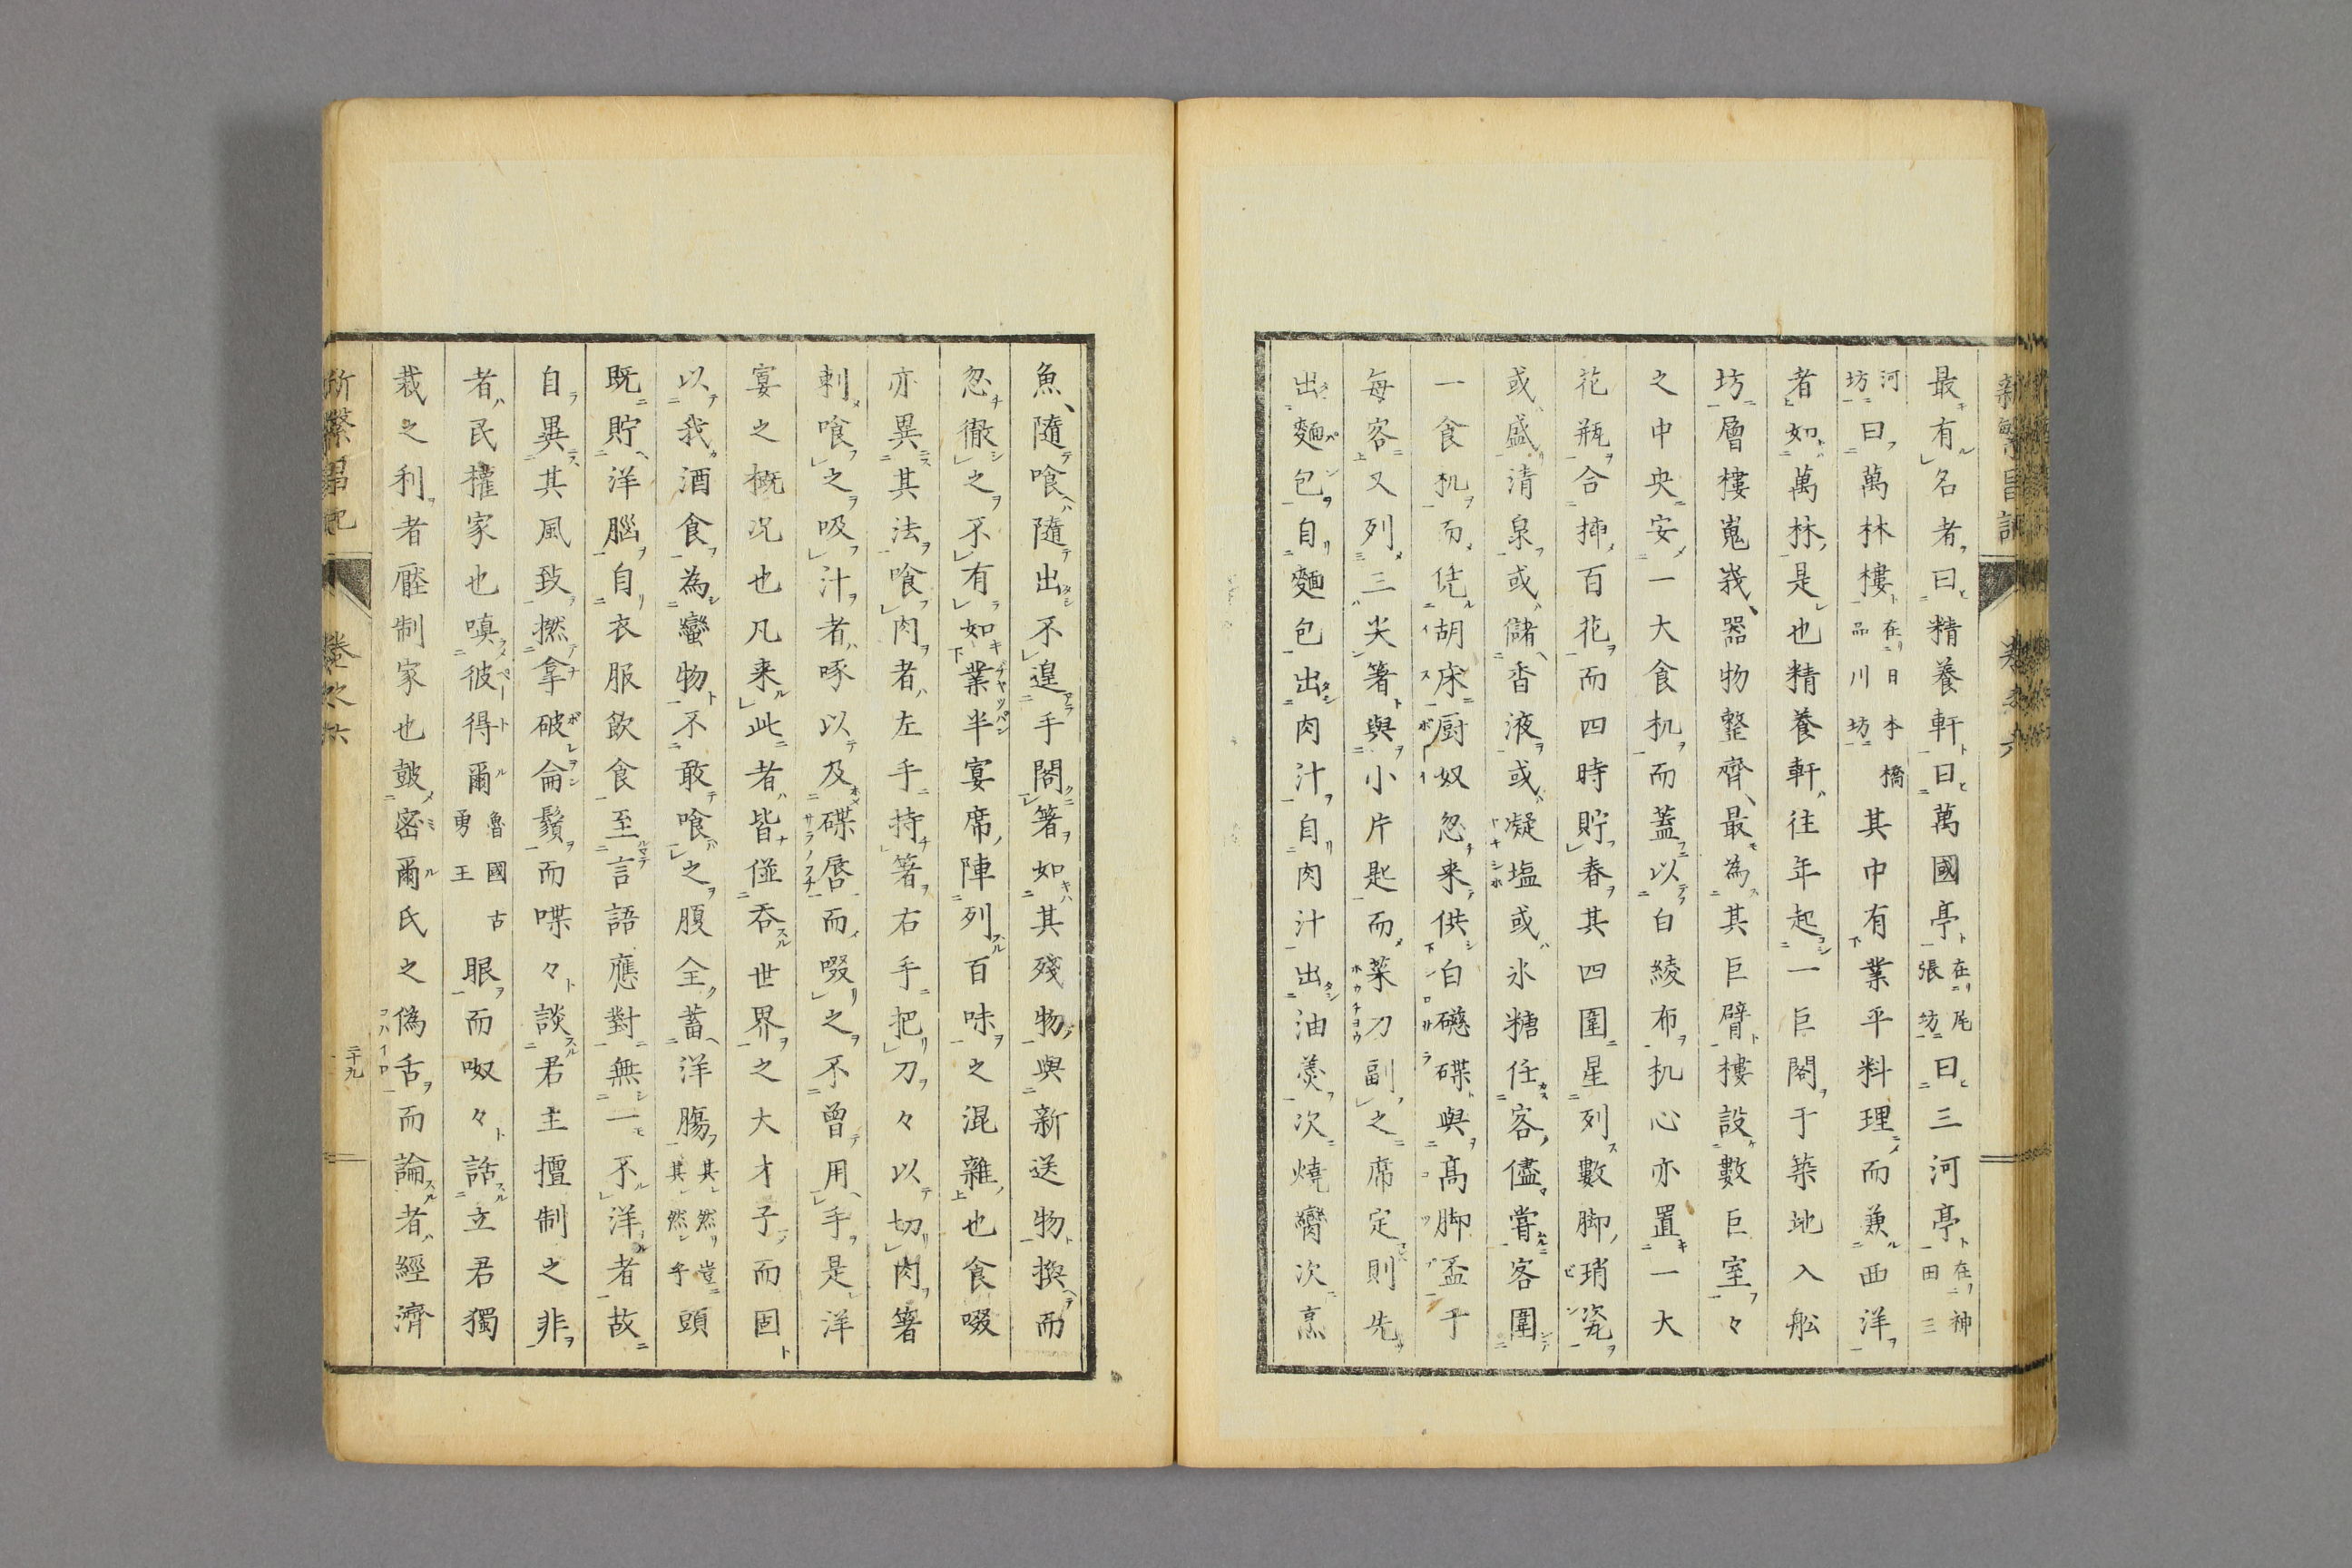 最有名者曰精養軒曰萬國亭在尾張坊曰三河亭在神田三
河坊曰萬林樓在日本橋品川坊其中有業平料理而兼西洋
者如萬林是也精養軒往年起一巨閣于築地入舩
坊層樓嵬峩器物整齊最為其巨臂樓設數巨室々
之中央安一大食机而蓋以白綾布机心亦置一大
花瓶合挿百花而四時貯春其四圍星列數脚硝瓷
或盛清泉或儲香液或凝塩或氷糖任客儘甞客圍
一食机而凭胡床厨奴忽来供白磁碟與高脚盃于
每客又列三尖箸與小片匙而菜刀副之席定則先
出麵包自麵包出肉汁自肉汁出油羮次燒臠次烹
魚隨喰隨出不遑手閣箸如其殘物與新送物換而
忽徹之不有如業半宴席陣列百味之混雜也食啜
亦異其法喰肉者左手持箸右手把刀々以切肉箸
刺喰之吸汁者啄以及碟唇而啜之不曾用手是洋
宴之概況也凡来此者皆併呑世界之大才子而固
以我酒食為蠻物不敢喰之腹全蓄洋膓其然其然豈然乎頭
既貯洋腦自衣服飲食至言語應對無一不洋者故
自異其風致撚拿破侖鬚而喋々談君主擅制之非
者民權家也嗔彼得爾魯國古勇王眼而呶々話立君獨
裁之利者壓制家也皷密爾氏之偽舌而論者經濟
卷之六
二十九